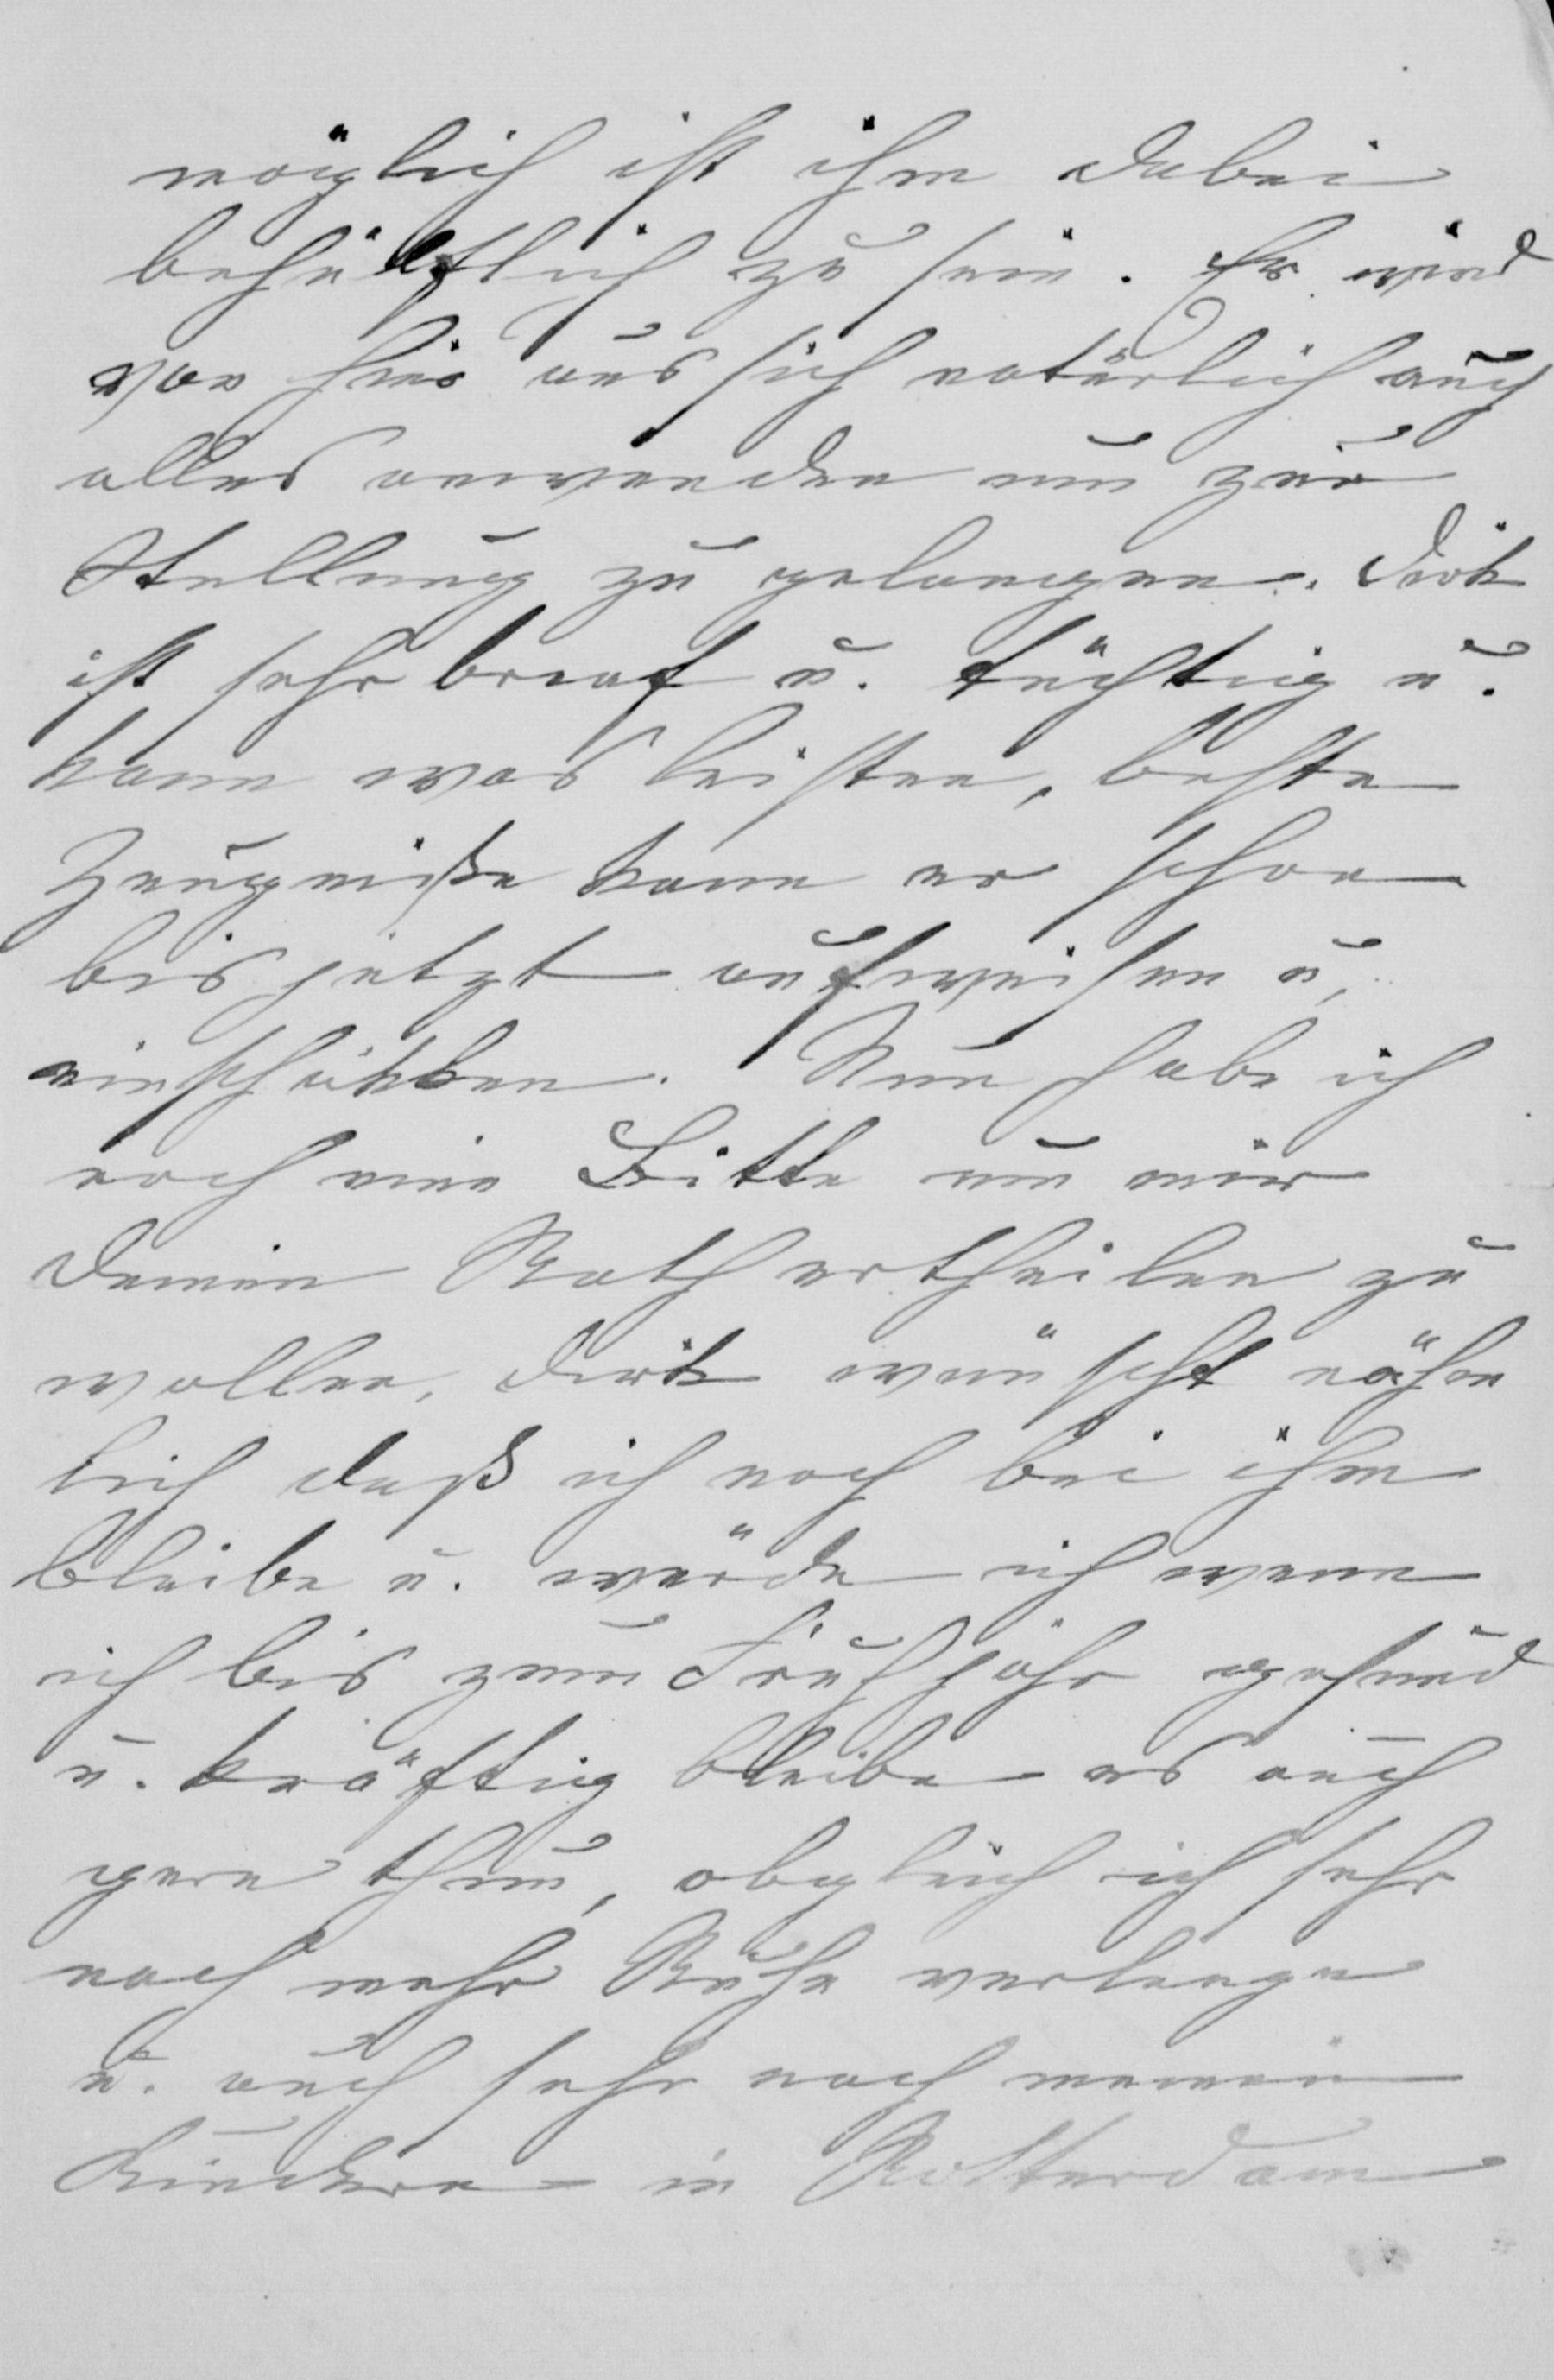 möglich ist ihm dabei
behülflich zu sein. Er wird
von hier aus sich natürlich auch
alles anwenden um zur
Stellung zu gelangen. Dirk
ist sehr braf u. tüchtig u.
kann was leisten, beste
Zeugniße kann er schon
bis jetzt aufweisen u,
einschikken. Nun habe ich
noch eine Bitte um mir
Deinen Rath ertheilen zu
wollen, Dirk wünscht nähm
lich daß ich noch bei ihm
bleibe u. würde ich wenn
ich bis zum Frühjahr gesund
u. kräftig bleibe es auch
gern thun, obgleich ich sehr
nach mehr Ruhe verlange
u. auch sehr nach meinen
Kindern in Rotterdam